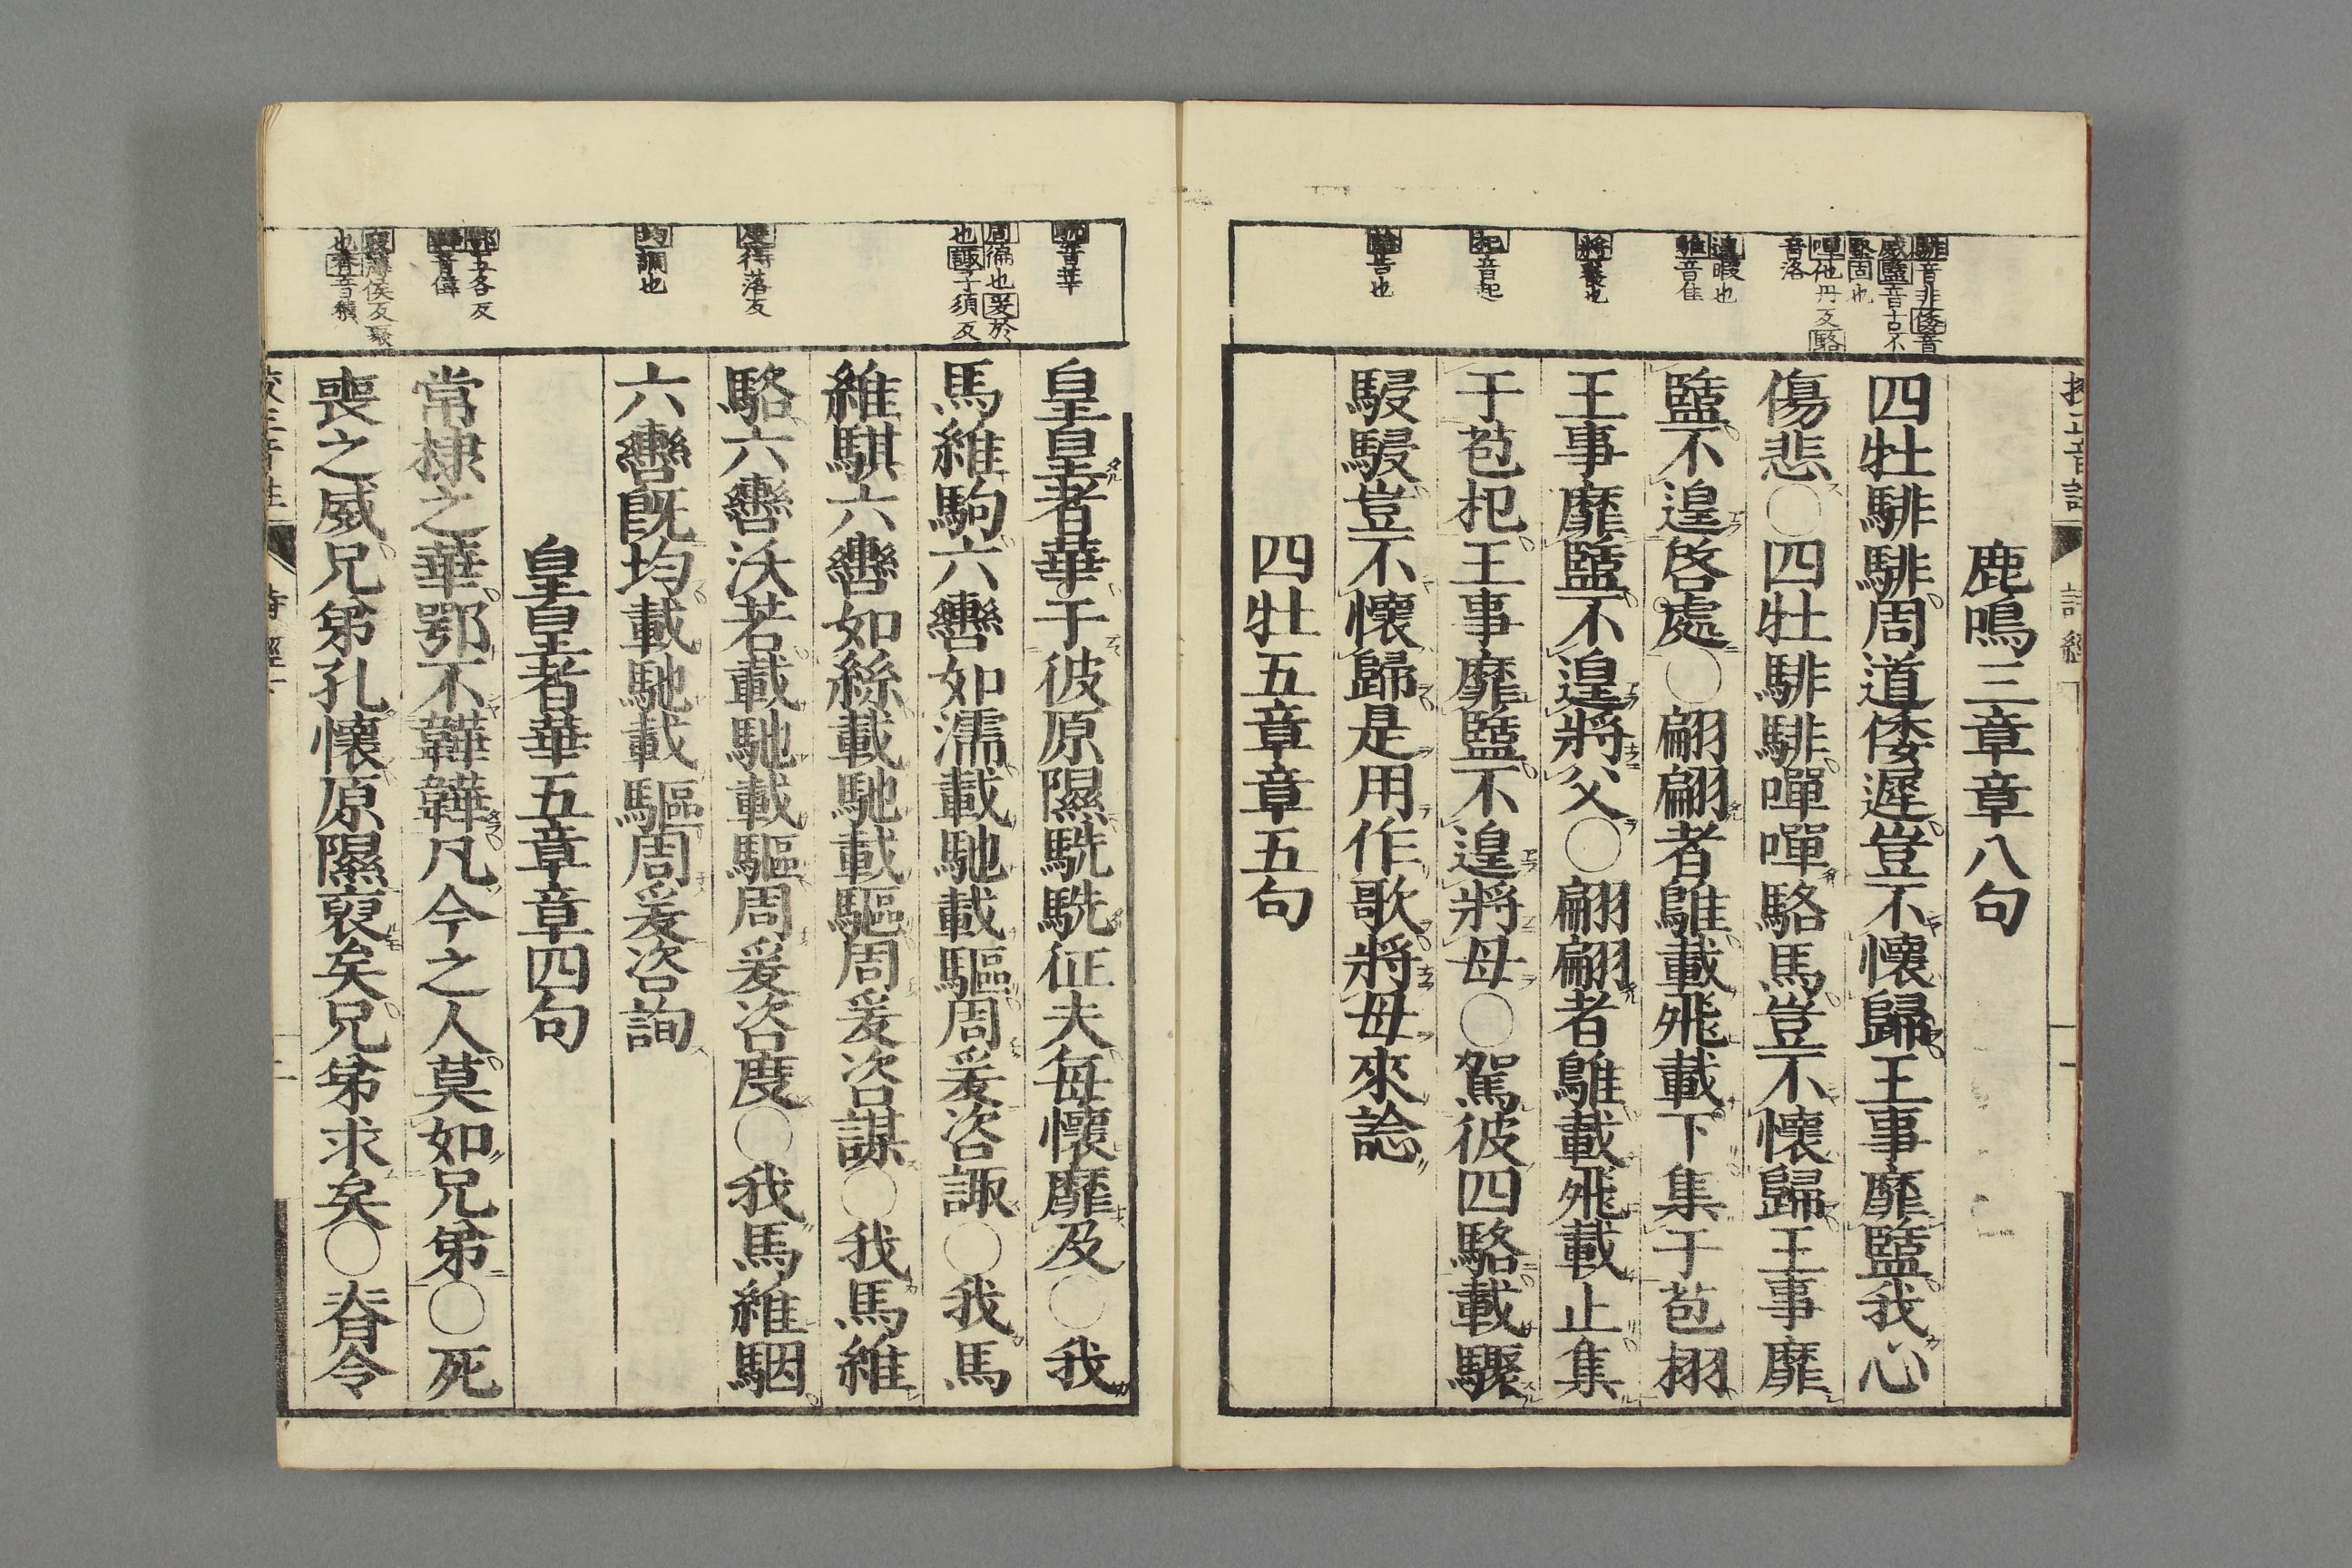 鹿鳴三章章八句
四牡騑騑周道倭遲豈不懷歸王事靡盬我心
傷悲○四牡騑騑嘽嘽駱馬豈不懷歸王事靡
盬不遑啓處○翩翩者鵻載飛載下集于苞栩
王事靡盬不遑將父○翩翩者鵻載飛載止集
于苞杞王事靡盬不遑將母○駕彼四駱載驟
駸駸豈不懷歸是用作歌將母來諗
四牡五章章五句
騑音非倭音
威盬音古不
堅固也
嘽他丹反駱
音洛
遑暇也
鵻音隹
將養也
杞音起
諗告也
皇皇者華于彼原隰駪駪征夫每懷靡及○我
馬維駒六轡如濡載馳載驅周爰咨諏○我馬
維騏六轡如絲載馳載驅周爰咨謀○我馬維
駱六轡沃若載馳載驅周爰咨度○我馬維駰
六轡既均載馳載驅周爰咨詢
皇皇者華五章章四句
常棣之華鄂不韡韡凡今之人莫如兄弟○死
喪之威兄弟孔懷原隰裒矣兄弟求矣○脊令
音莘
周徧也爰於
也諏子須反
度待落反
均調也
鄂五各反
韡音偉
裒薄侯反聚
也脊音積